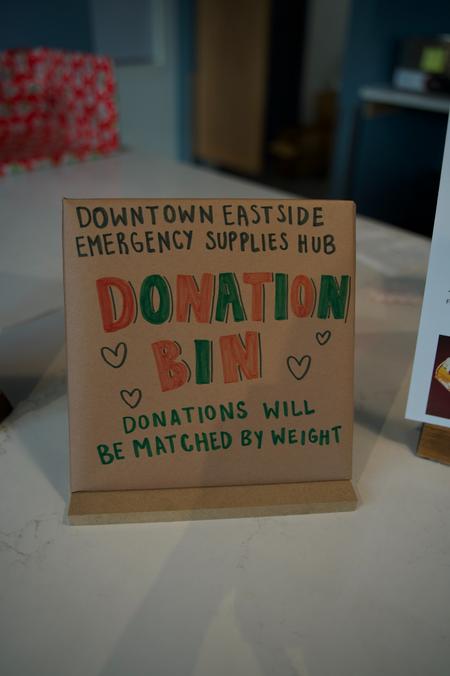 DOWNTOWN EASTSIDE
EMERGENCY SUPPLIES HUB
DONATION
BIN
DONATIONS WILL
BE MATCHED BY WEIGHT